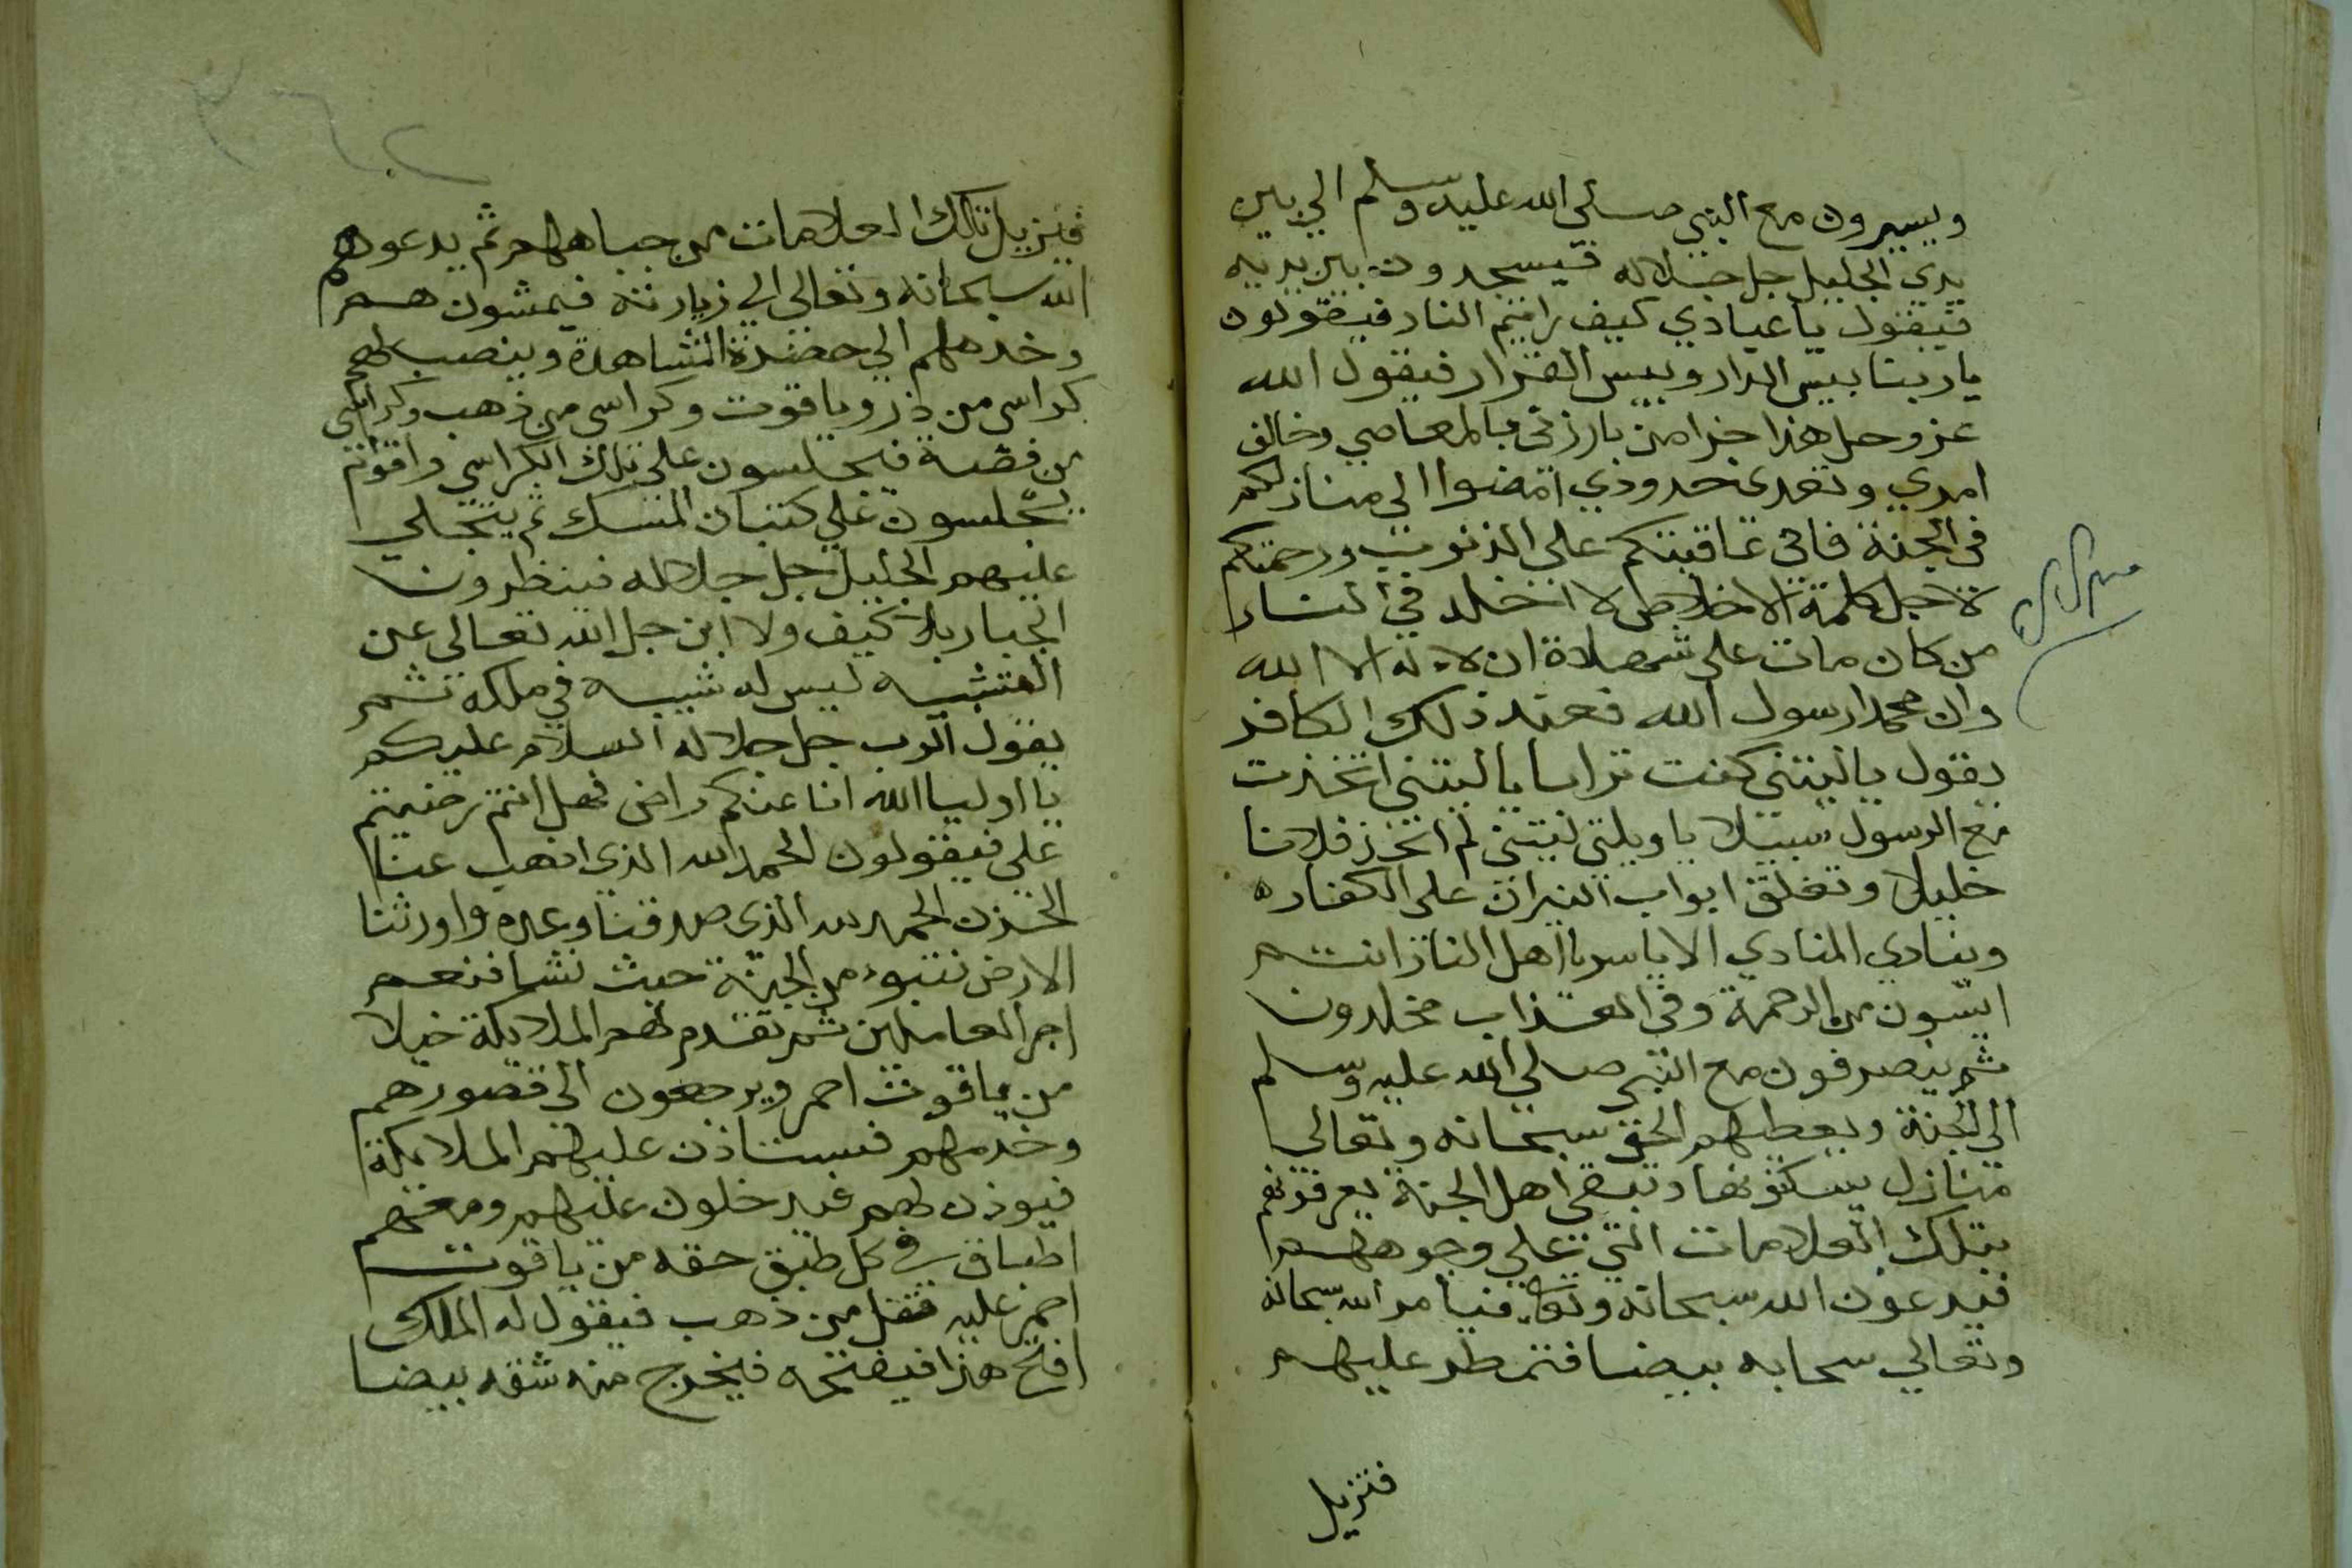 ويسيرون مع النبي صلى الله عليه وسلم الي بين
يدي الجليل جل جلاله فيسجدون بين يديه
فيقول ياعبادي كيف رايتم النار فيقولون
ياربنا بيس الدار وبيس القرار فيقول الله
عز وجل هذا جزا من بارزني بالمعاصي وخالف
امري وتعدى حدودي امضوا الى منازلكم
في الجنة فاني عاقبتكم على الذنوب ورحمتكم
لاجل كلمة الاخلاص لا اخلد في النار
من كان مات على شهادة ان لا اله الا الله
وان محمدا رسول الله فعند ذلك الكافر
يقول ياليتني كنت ترابا ياليتني اتخذت
مع الرسول سبيلا ياويلتي ليتني لم اتخذ فلانا
خليلا وتغلق ابواب النيران على الكفاره
وينادي المنادي الا ياسر يااهل النار انتم
ايسون من الرحمة وفى العذاب مخلدون
ثم ينصرفون مع النبي صلي الله عليه وسلم
الى الجنة ويعطيهم الحق سبحانه وتعالي
منازل يسكنونها وتبقى اهل الجنة يعرفونهم
بتلك العلامات التي علي وجوههم
فيدعون الله سبحانه وتعالى فيامر الله سبحانه
وتعالي سحابه بيضا فتمطر عليهم
فتزيل
فتزيل تلك العلامات من جباههم ثم يدعوهم
الله سبحانه وتعالى الي زيارته فيمشون هم
وخدمهم الي حضرة المشاهدة وينصب لهم
كراسي من در وياقوت وكراسي من ذهب وكراسي
من فضة فيجلسون على تلك الكراسي واقوام
يجلسون علي كثبان المسك ثم يتجلي
عليهم الجليل جل جلاله فينظرون
الجبار بلا كيف ولا اين جل الله تعالى عن
التشبيه ليس له شبيه في ملكه ثم
يقول الرب جل جلاله السلام عليكم
يا اوليا الله انا عنكم راض فهل انتم رضيتم
علي فيقولون الحمد لله الذي اذهب عنا
الحزن الحمد لله الذي صدقنا وعده واورثنا
الارض نتبوء من الجنة حيث نشا فنعم
اجر العاملين ثم تقدم لهم الملايكة خيلا
من ياقوت احمر ويرجعون الى قصورهم
وخدمهم فيستاذن عليهم الملايكة
فيوذن لهم فيدخلون عليهم ومعهم
اطباق في كل طبق حقه من ياقوت
احمر عليه قفل من ذهب فيقول له الملك
افتح هذا فيفتحه فيخرج منه شقه بيضا